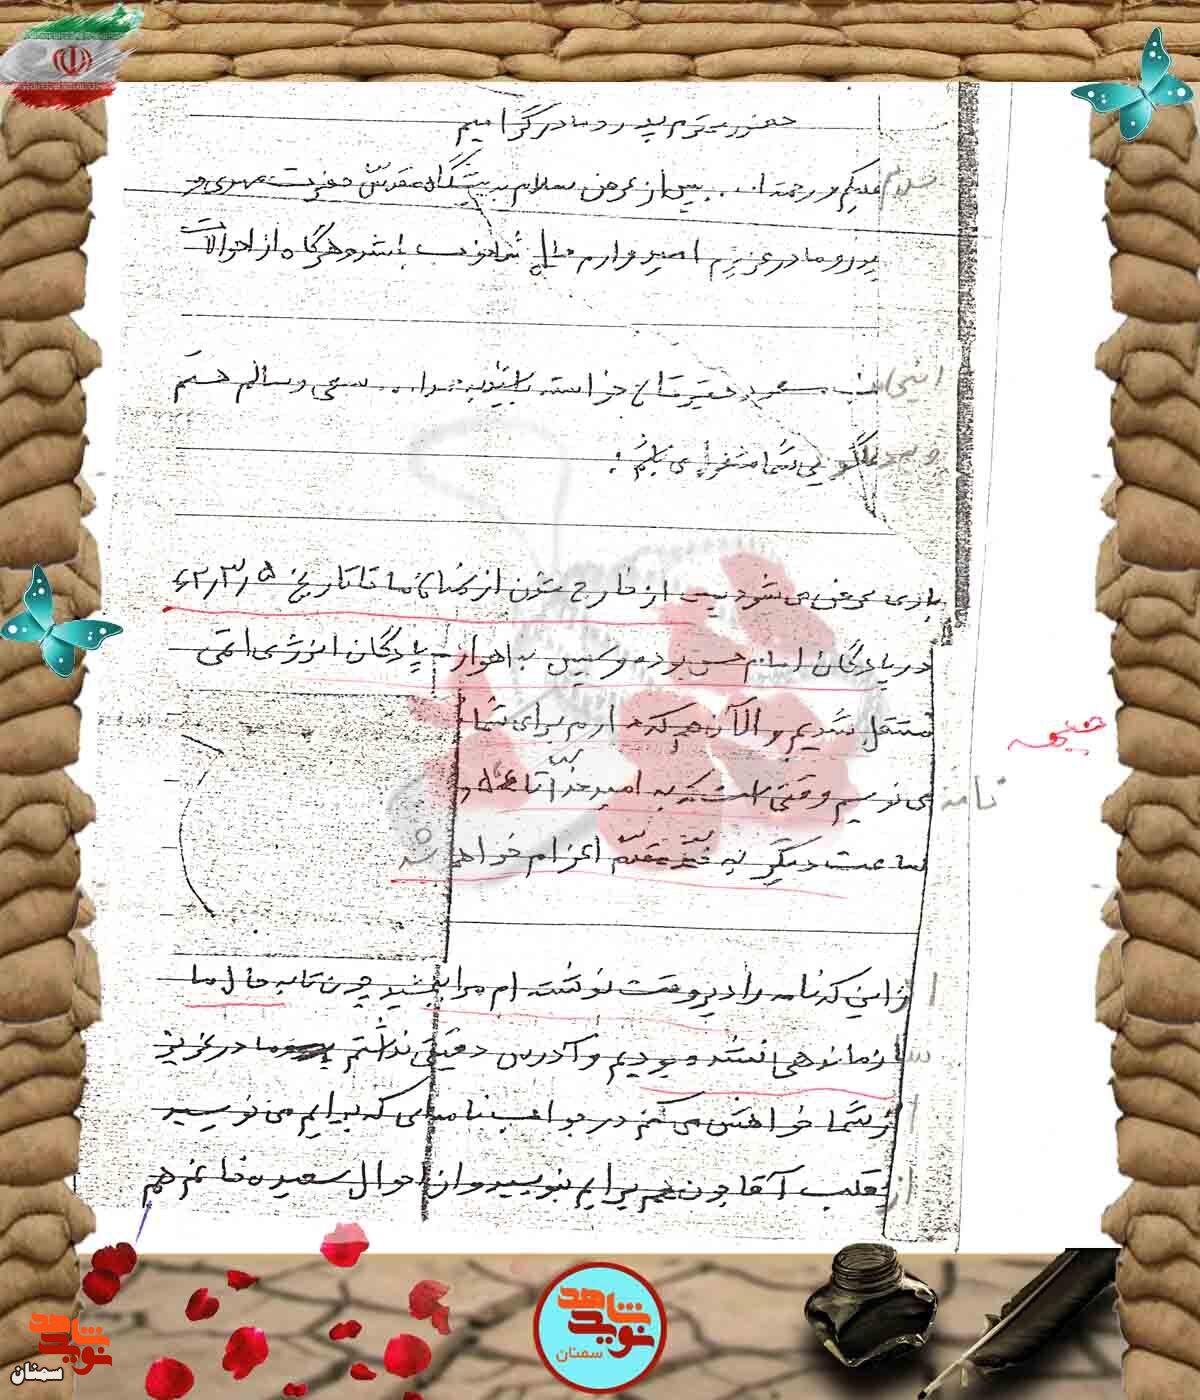 حضور محترم پدر و مادر گرامیم
سلام علیکم و رحمت ا... پس از عرض سلام به پیشگاه مقدس حضرت مهدی و
پدر و مادر عزیزم امیدوارم حال شما خوب باشد و هرگاه از احوالات
اینجانب مسعود حقیر خواسته باشید بحمدا... سالم هستم
و به دعاگویی شما مشغول می باشم :
باری عرض می شود پس از خارج شدن از ما تا تاریخ ۶۲٫۳٫۵
در پادگان امام حسن بوده و سپس به اهواز - پادگان انرژی اتمی
منتقل شدیم و الآن هم که دارم برای شما
نامه می نویسم وقتی است که به امید خدا تا ۴ ۵ و
ساعت دیگر به خط مقدم اعزام خواهم شد
از این که نامه را دیر وقت نوشته ام مرا ببخشید چون تا به حال ما
سازماندهی نشده بودیم و آدرس دقیقی نداشتم مادر عزیز
از شما خواهش می کنم در جواب نامه ای که برایم می نویسید
از آقاجون هم برایم بنویسید و از احوال سعیده خانم هم
شاهد
نوید
سمنان
شاهد
نوید
سمنان